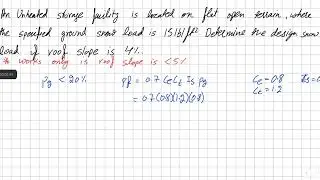 An Unheated storage facility is located on flat open terrain, where
the specified ground snow load is 15 lb/ft² Determine the design snow
load if roof slope is 4%.
* works only is roof slope is <5%
Pg < 20% Pf = 0.7 Ce Ct Is Pg Ce = 0.8
= 0.7(0.8)(1.2)(0.8) Ct = 1.2